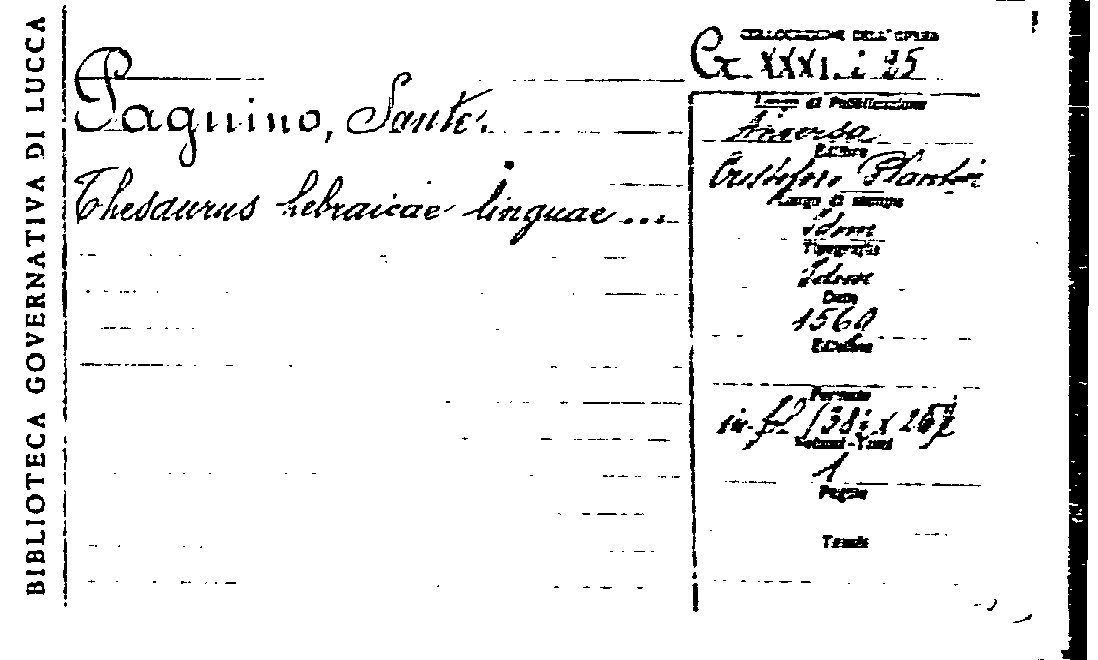 BIBLIOTECA GOVERNATIVA DI LUCCA
Pagnino, Sante.
Thesaurus hebraicae linguae ...
COLLOCAZIONE DELL'OPERA
XXXI. i 25
Luogo di Pubblicazione
Anversa
Editore
Cristoforo Plantin
Luogo di stampa
Idem
Tipografia
Idem
Data
1560
Edizione
Formato
in-fol
Volumi-Tomi
1
Pagine